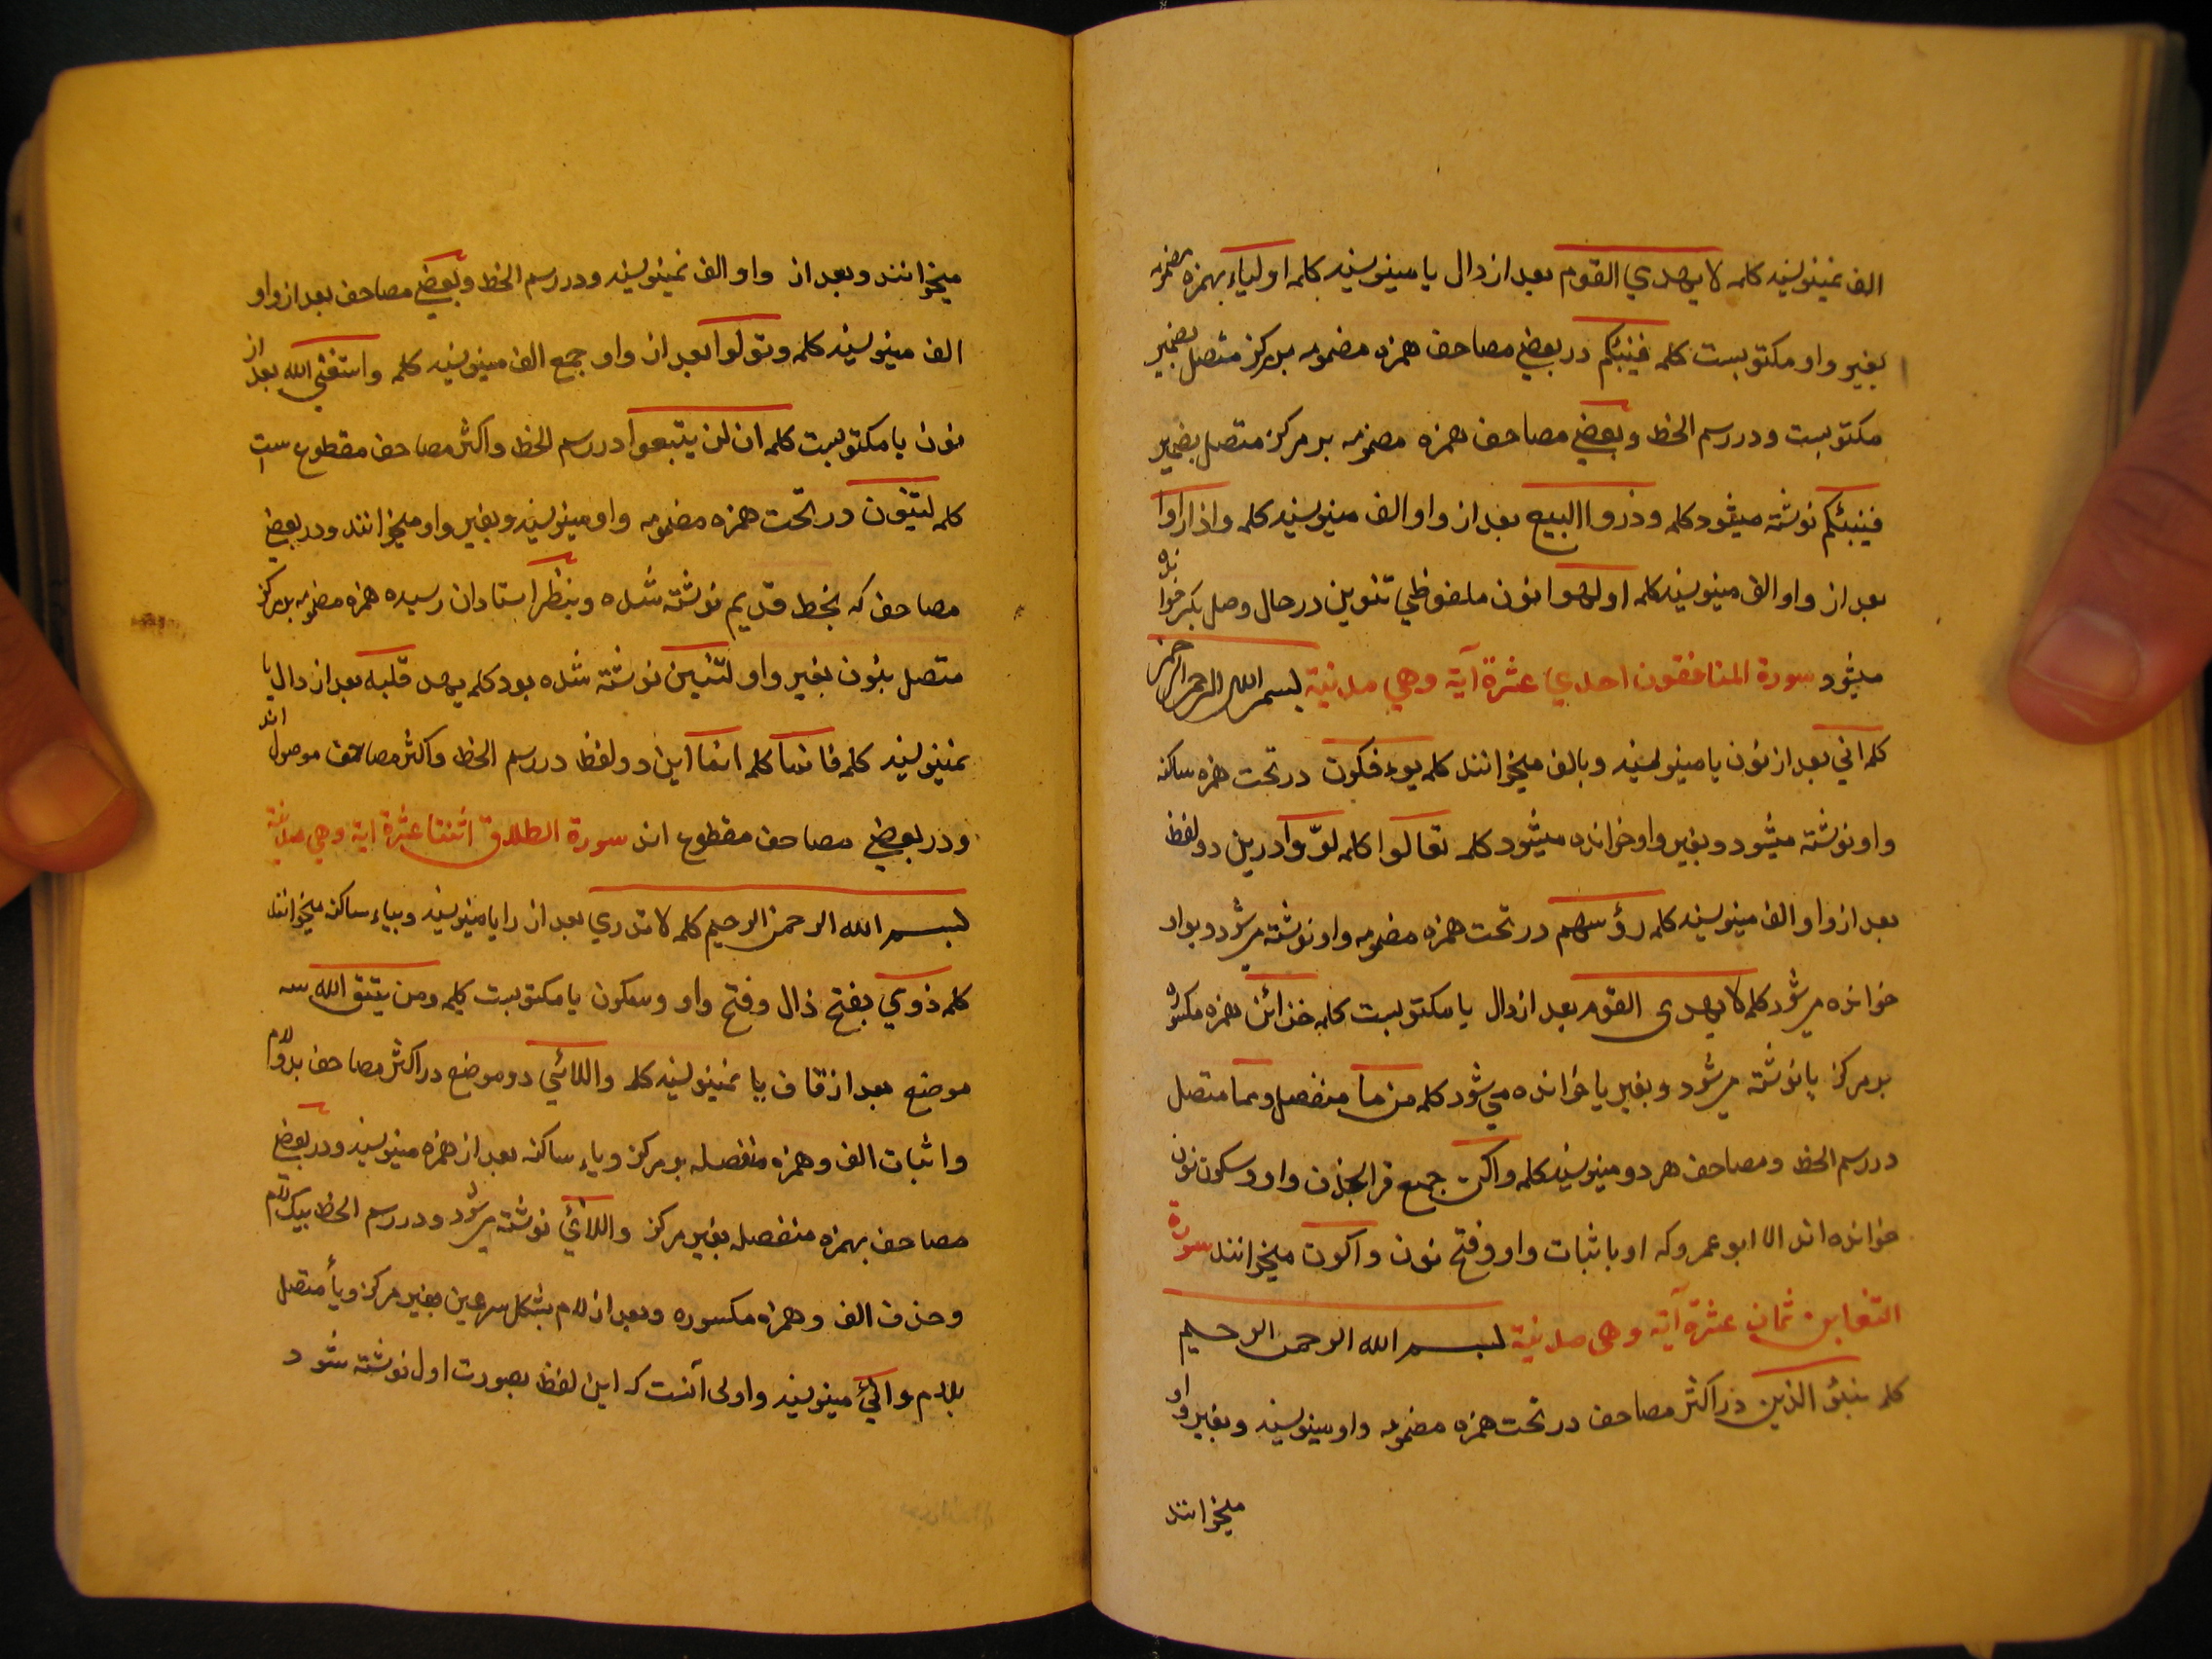 الف نمینویسند کلمه لا یهدي القوم بعد از دال یا مینویسند کلمه اولیاء بهمزه مضمومه
بغیر واو مکتوبست کلمه فینبئکم در بعضي مصاحف همزه مضمومه بر مرکز متصل بضمیر
مکتوبست و در رسم الخط و بعضي مصاحف همزه مضمومه بر مرکز متصل بضمیر
فینبئکم نوشته میشود کلمه وذروا البیع بعد از واو الف مینویسند کلمه واذا راوا
بعد از واو الف مینویسند کلمه او لهوا نون ملفوظي تنوین در حال وصل بکسر خوانده
میشود سورة المنافقون احدي عشرة آیة وهي مدنیة بسم الله الرحمن الرحیم
کلمه اني بعد از نون یا مینویسند و بالف میخوانند کلمه یوءفکون در تحت همزه ساکنه
واو نوشته میشود و بغیر واو خوانده میشود کلمه تعالوا کلمه لوّوا درین دو لفظ
بعد از واو الف مینویسند کلمه رؤسهم در تحت همزه مضمومه واو نوشته میشود و بواو
خوانده میشود کلمه لا یهدی القوم بعد از دال یا مکتوبست کلمه خزائن همزه مکسوره
بر مرکز یا نوشته میشود و بغیر یا خوانده می شود کلمه من ما منفصل و مما متصل
در رسم الخط و مصاحف هر دو مینویسند کلمه واکن جمیع قرا بحذف واو و سکون نون
خوانده اند الا ابو عمرو که او باثبات واو و فتح نون واکون میخوانند سورة
التغابن ثمان عشرة آیة وهی مدنیة بسم الله الرحمن الرحیم
کلمه نبئو الذین در اکثر مصاحف در تحت همزه مضمومه واو مینویسند و بغیر واو
میخوانند
میخوانند و بعد از واو الف نمینویسند و در رسم الخط و بعضي مصاحف بعد از واو
الف مینویسند کلمه وتولوا بعد از واو جمع الف مینویسند کلمه واستغني الله بعد از
نون یا مکتوبست کلمه ان لن یبعثوا در رسم الخط و اکثر مصاحف مقطوع است
کلمه لتنبؤن در تحت همزه مضمومه واو مینویسند و بغیر واو میخوانند و در بعضي
مصاحف که بخط قدیم نوشته شده و بنظر استادان رسیده همزه مضمومه بر مرکز
متصل بنون بغیر واو لتنبئن نوشته شده بود کلمه یهد قلبه بعد از دال یا
نمینویسند کلمه فانما کلمه انما این دو لفظ در رسم الخط و اکثر مصاحف موصول اند
و در بعضي مصاحف مقطوع اند سورة الطلاق اثنتا عشرة ایة وهي مدنیة
بسم الله الرحمن الرحیم کلمه لا تدري بعد از را یا مینویسند و بیاء ساکنه میخوانند
کلمه ذوي بفتح ذال و فتح واو و سکون یا مکتوبست کلمه ومن یتق الله سه
موضع بعد از قاف یا نمینویسند کلمه واللائي دو موضع در اکثر مصاحف بدو لام
واثبات الف و همزه منفصله بر مرکز و یاء ساکنه بعد از همزه مینویسند و در بعضي
مصاحف بهمزه منفصله بغیر مرکز واللاءي نوشته میشود و در رسم الخط بیک لام
و حذف الف و همزه مکسوره و بعد از لام بشکل سر عین بغیر مرکز و یا متصل
بلام والئ مینویسند و اولی آنست که این لفظ بصورت اول نوشته شود